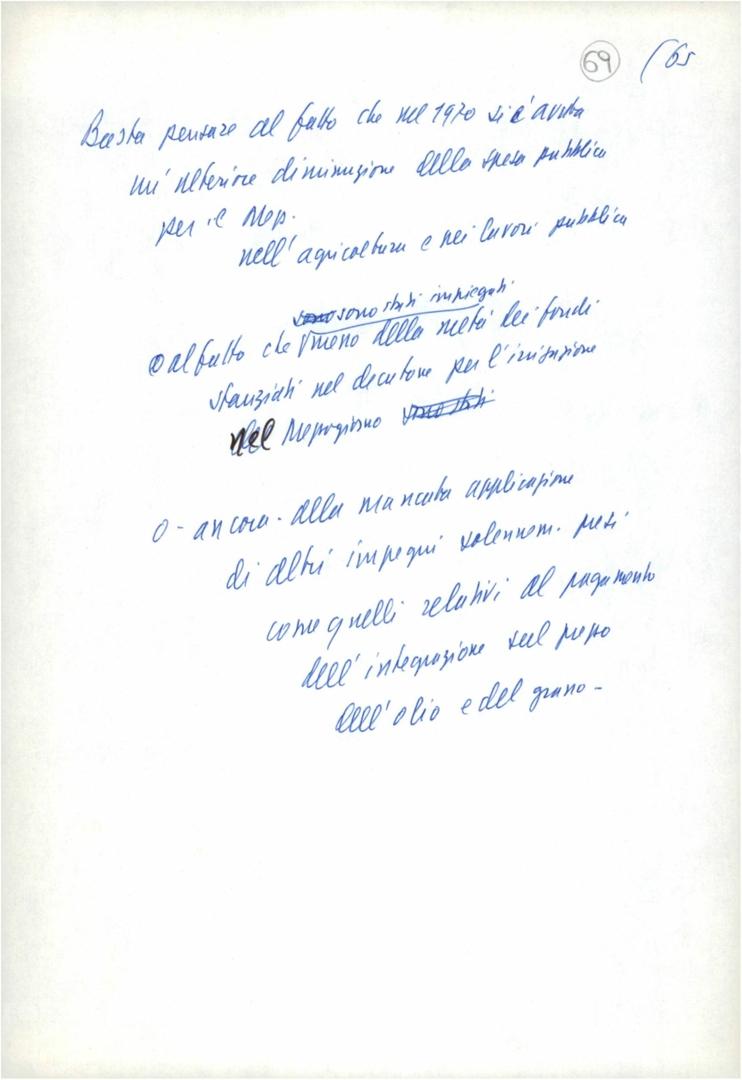 69 (65
Basta pensare al fatto che nel 1970 si è avuta
un'ulteriore diminuzione della spesa pubblica
per il Mezz.
nell'agricoltura e nei lavori pubblici
sono sono stati impiegati
o al fatto che meno della metà dei fondi
stanziati nel decennio per l'irrigazione
nel Mezzogiorno sono stati
o - ancora - alla mancata applicazione
di altri impegni solennem. presi
come quelli relativi al pagamento
dell'integrazione sul prezzo
dell'olio e del grano -